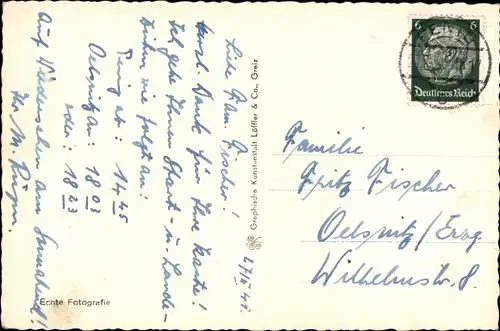 27.IV.41.
Liebe Fam. Fischer!
Herzl. Dank für Ihre Karte!
Ich gebe Ihnen Start- u. Lande-
zeiten wie folgt an:
ab: 14 45
Oelsnitz an: 18 03
oder: 18 23
Auf Wiedersehn am Sonnabend!
Ihr M.
Echte Fotografie
Graphische Kunstanstalt Löffler & Co., Greiz
6 6
Deutsches Reich
Familie
Fritz Fischer
Oelsnitz/Erzg
Wilhelmstr. 8.